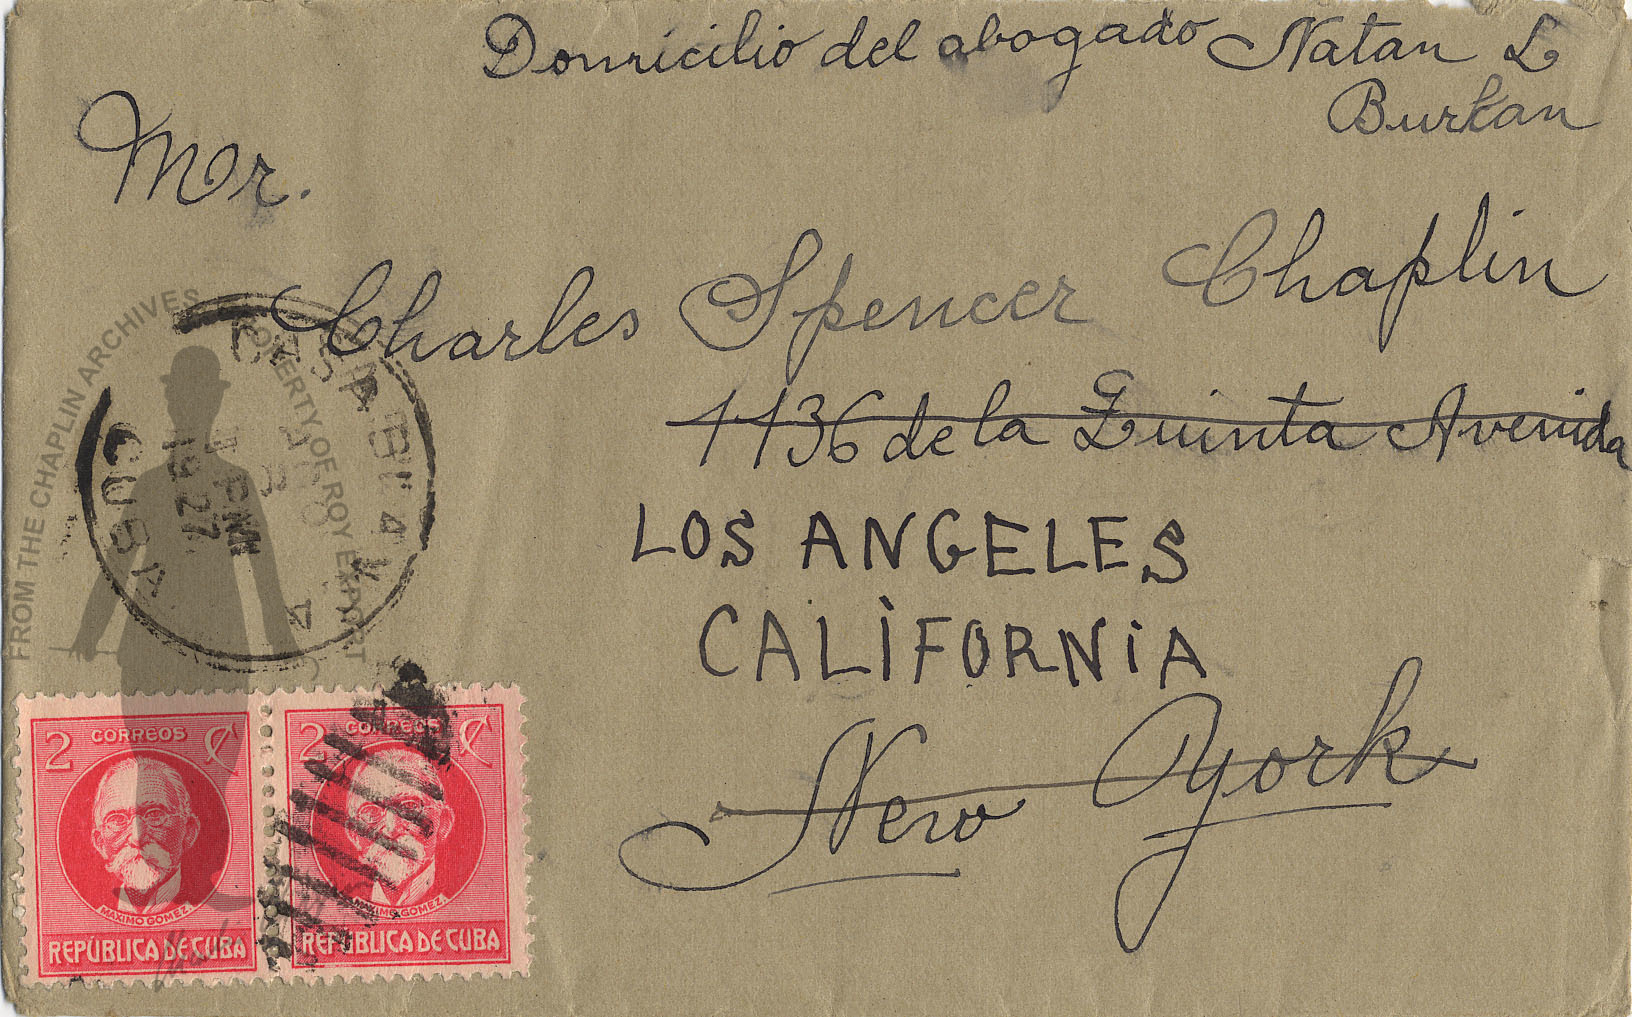 Domicilio del abogado Natan L
Burkan
Mr.
Charles Spencer Chaplin
1136 de la Quinta Avenida
LOS ANGELES
CALIFORNIA
New York
FROM THE CHAPLIN ARCHIVES
PROPERTY OF ROY EXPORT
CUBA
PM
1927
2 CORREOS ₵
MAXIMO GOMEZ.
REPÚBLICA DE CUBA
2 CORREOS ₵
MAXIMO GOMEZ.
REPÚBLICA DE CUBA